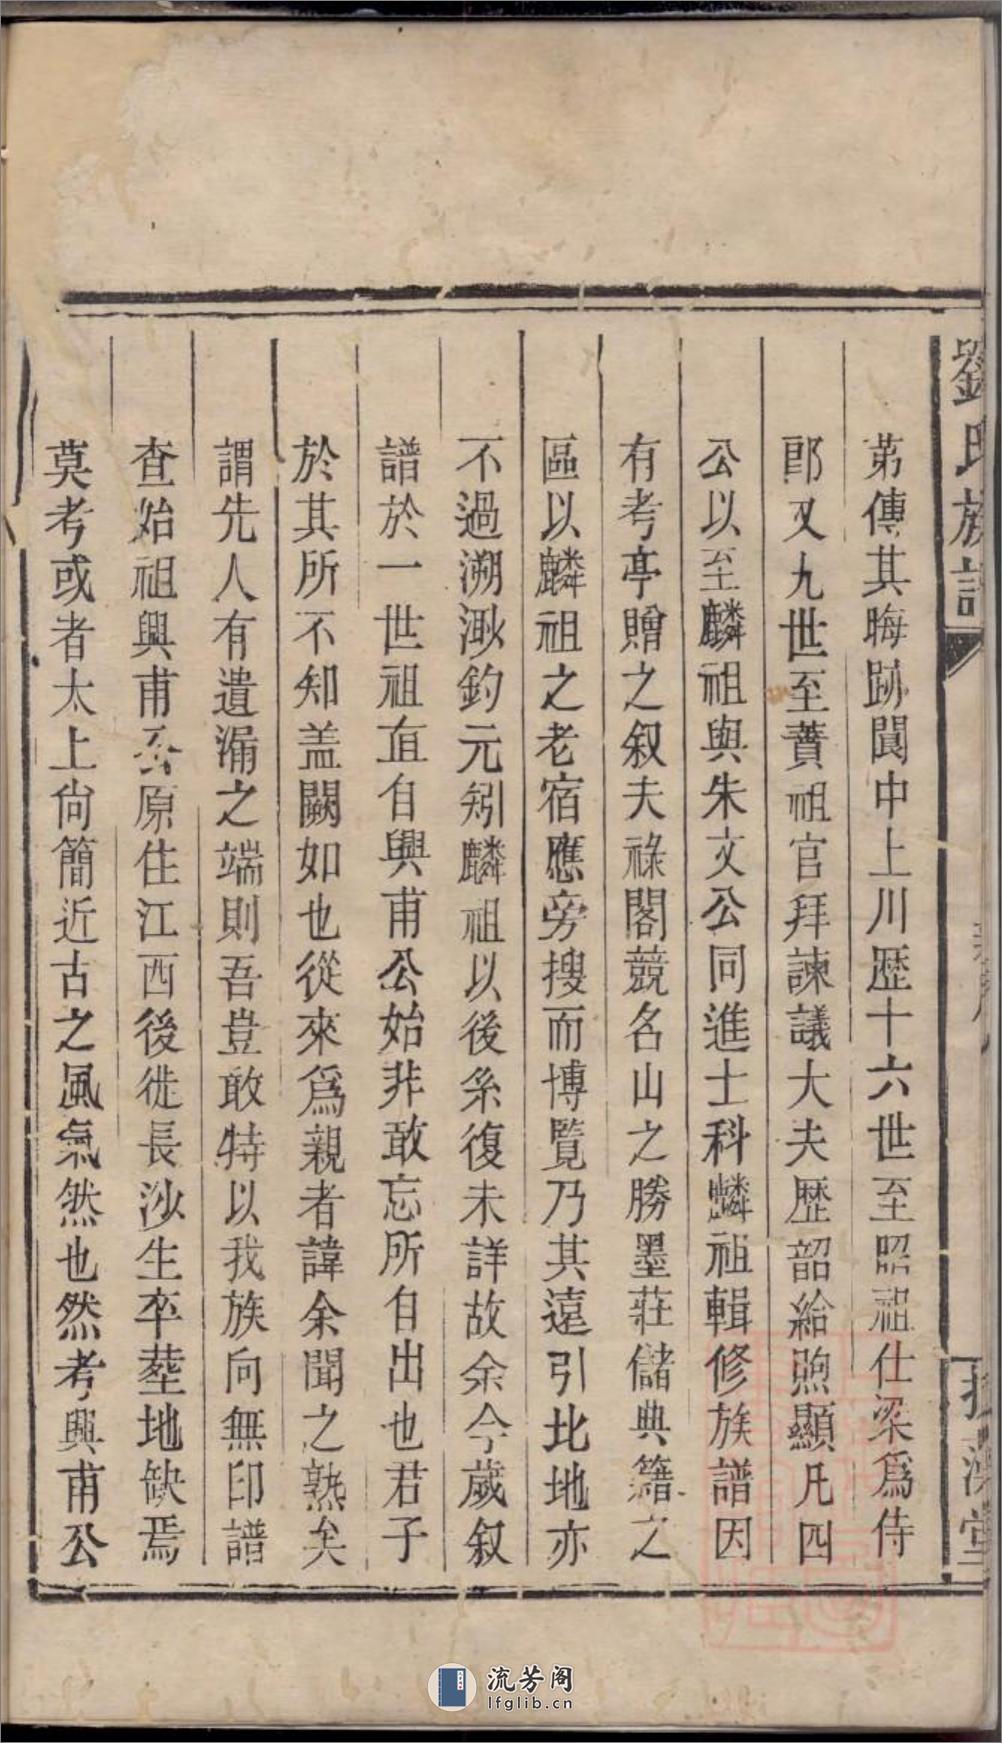 劉氏族譜
第傳其晦跡閩中上川歷十六世至照祖仕梁爲侍
郎又九世至蕢祖官拜諫議大夫歷韶給煦顯凡四
公以至麟祖與朱文公同進士科麟祖輯修族譜因
有考亭贈之叙夫祿閣競名山之勝墨莊儲典籍之
區以麟祖之老宿應旁搜而博覽乃其遠引北地亦
不過溯源鈞元矧麟祖以後系復未詳故余今歲叙
譜於一世祖直自興甫公始非敢忘所自出也君子
於其所不知盖闕如也從來爲親者諱余聞之熟矣
謂先人有遺漏之端則吾豈敢特以我族向無印譜
查始祖興甫公原住江西後徙長沙生卒塟地缺焉
莫考或者太上尙簡近古之風氣然也然考興甫公
流芳阁
lfglib.cn